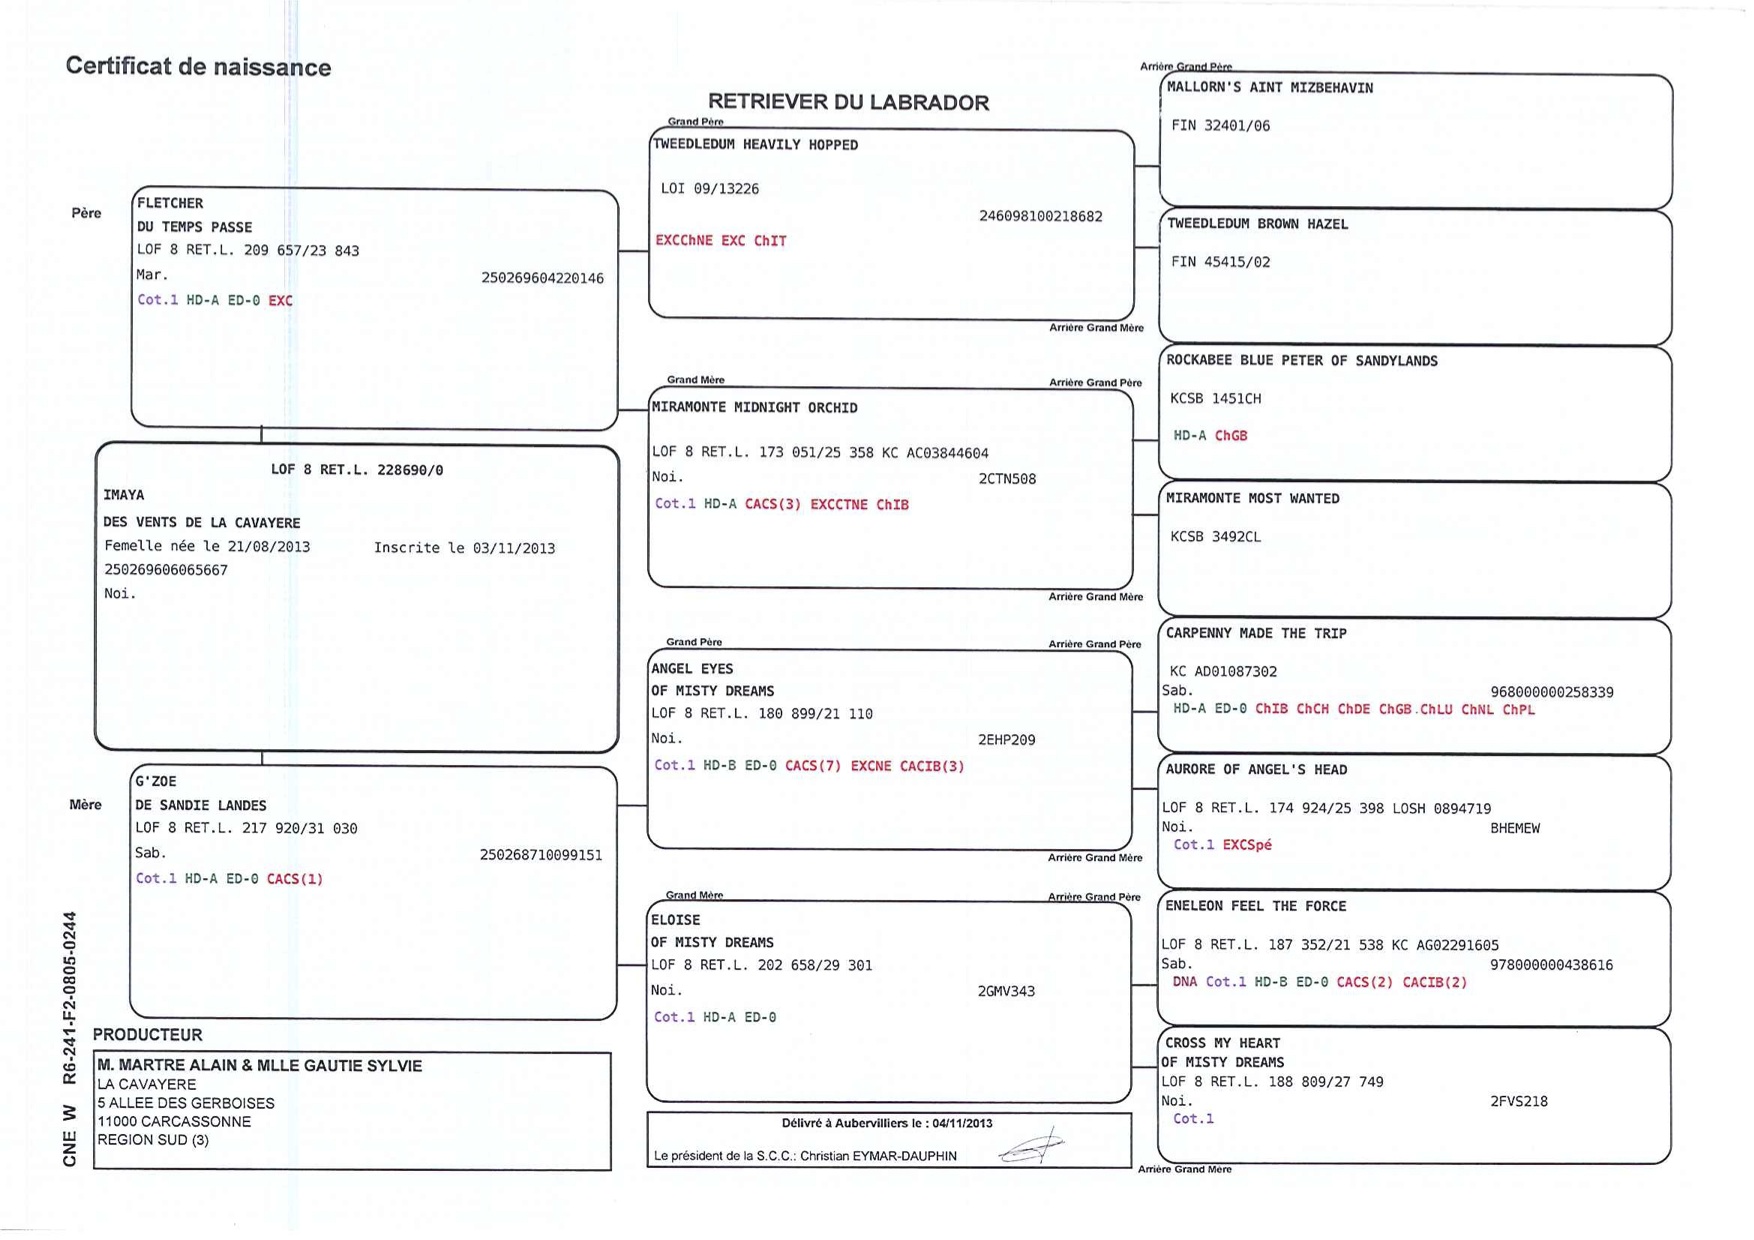 Certificat de naissance
RETRIEVER DU LABRADOR
Père
FLETCHER
DU TEMPS PASSE
LOF 8 RET.L. 209 657/23 843
Mar.
250269604220146
Cot.1 HD-A ED-0 EXC
LOF 8 RET.L. 228690/0
IMAYA
DES VENTS DE LA CAVAYERE
Femelle née le 21/08/2013 Inscrite le 03/11/2013
250269606065667
Noi.
Mère
G'ZOE
DE SANDIE LANDES
LOF 8 RET.L. 217 920/31 030
Sab.
250268710099151
Cot.1 HD-A ED-0 CACS(1)
CNE W R6-241-F2-0805-0244
PRODUCTEUR
M. MARTRE ALAIN & MLLE GAUTIE SYLVIE
LA CAVAYERE
5 ALLEE DES GERBOISES
11000 CARCASSONNE
REGION SUD (3)
Grand Père
TWEEDLEDUM HEAVILY HOPPED
LOI 09/13226
246098100218682
EXCChNE EXC ChIT
Arrière Grand Mère
Grand Mère
Arrière Grand Père
MIRAMONTE MIDNIGHT ORCHID
LOF 8 RET.L. 173 051/25 358 KC AC03844604
Noi.
2CTN508
Cot.1 HD-A CACS(3) EXCCTNE ChIB
Arrière Grand Mère
Grand Père
Arrière Grand Père
ANGEL EYES
OF MISTY DREAMS
LOF 8 RET.L. 180 899/21 110
Noi.
2EHP209
Cot.1 HD-B ED-0 CACS(7) EXCNE CACIB(3)
Arrière Grand Mère
Grand Mère
Arrière Grand Père
ELOISE
OF MISTY DREAMS
LOF 8 RET.L. 202 658/29 301
Noi.
2GMV343
Cot.1 HD-A ED-0
Délivré à Aubervilliers le : 04/11/2013
Le président de la S.C.C.: Christian EYMAR-DAUPHIN
Arrière Grand Père
MALLORN'S AINT MIZBEHAVIN
FIN 32401/06
TWEEDLEDUM BROWN HAZEL
FIN 45415/02
ROCKABEE BLUE PETER OF SANDYLANDS
KCSB 1451CH
HD-A ChGB
MIRAMONTE MOST WANTED
KCSB 3492CL
CARPENNY MADE THE TRIP
KC AD01087302
Sab.
968000000258339
HD-A ED-0 ChIB ChCH ChDE ChGB ChLU ChNL ChPL
AURORE OF ANGEL'S HEAD
LOF 8 RET.L. 174 924/25 398 LOSH 0894719
Noi.
BHEMEW
Cot.1 EXCSpé
ENELEON FEEL THE FORCE
LOF 8 RET.L. 187 352/21 538 KC AG02291605
Sab.
978000000438616
DNA Cot.1 HD-B ED-0 CACS(2) CACIB(2)
CROSS MY HEART
OF MISTY DREAMS
LOF 8 RET.L. 188 809/27 749
Noi.
2FVS218
Cot.1
Arrière Grand Mère